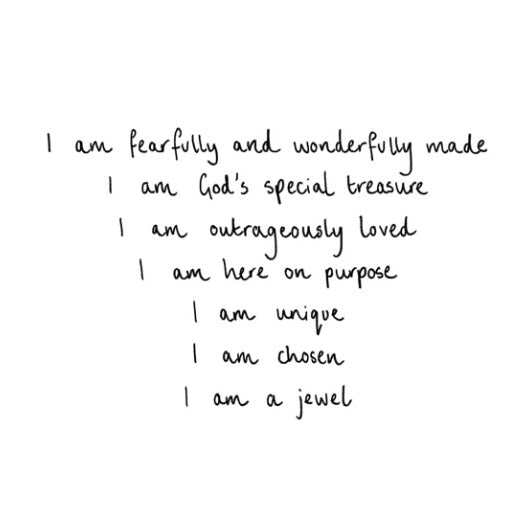 I am fearfully and wonderfully made
I am God's special treasure
I am outrageously loved
I am here on purpose
I am unique
I am chosen
I am a jewel